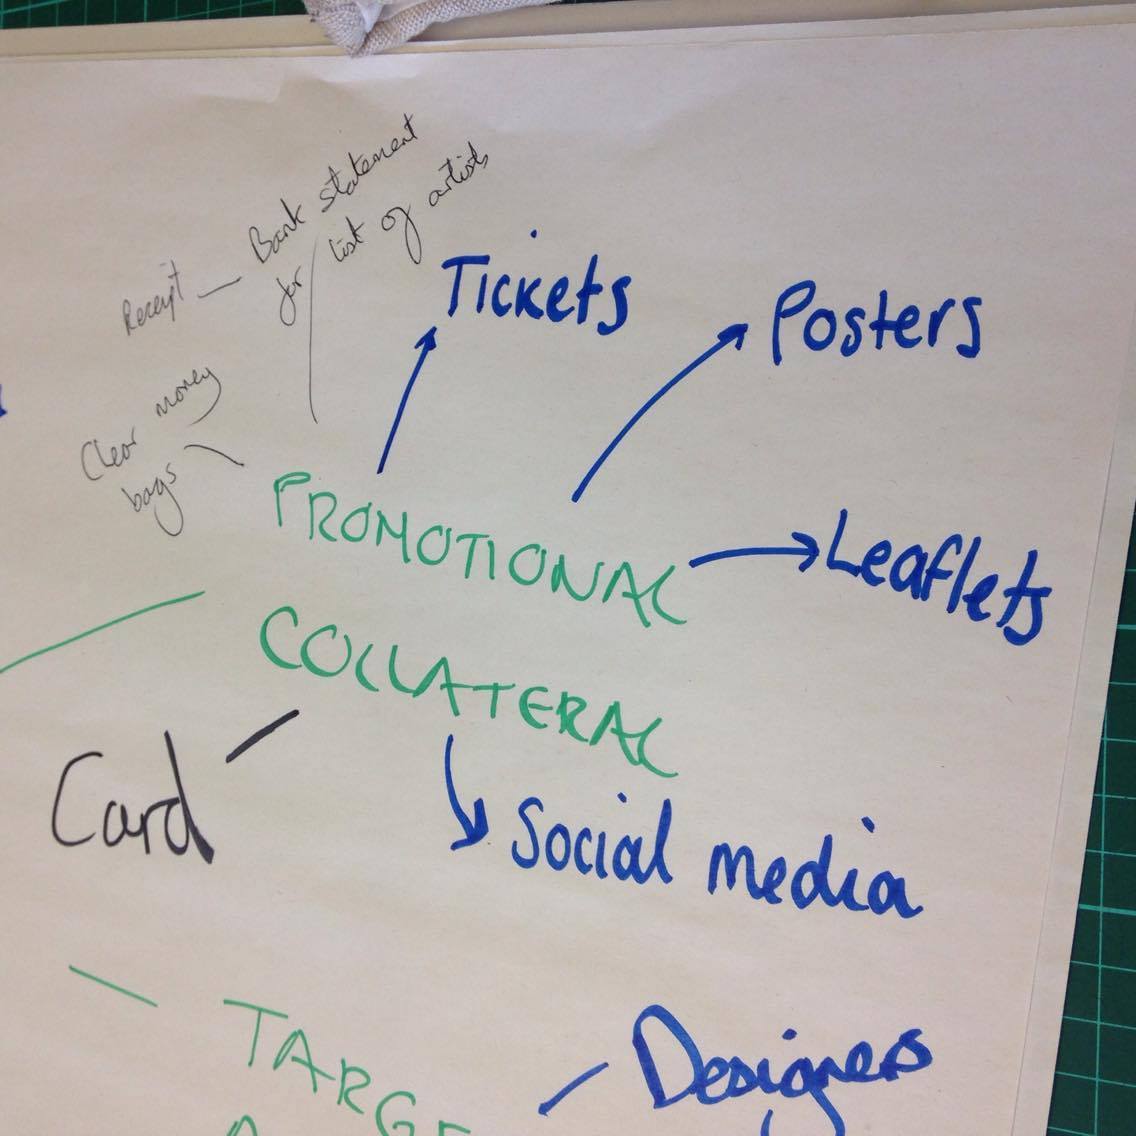 Bank statement
for list of artists
Receipt
Tickets
Posters
Clear money
bags
PROMOTIONAL
COLLATERAL
Leaflets
Card
Social media
TARGE
Designers